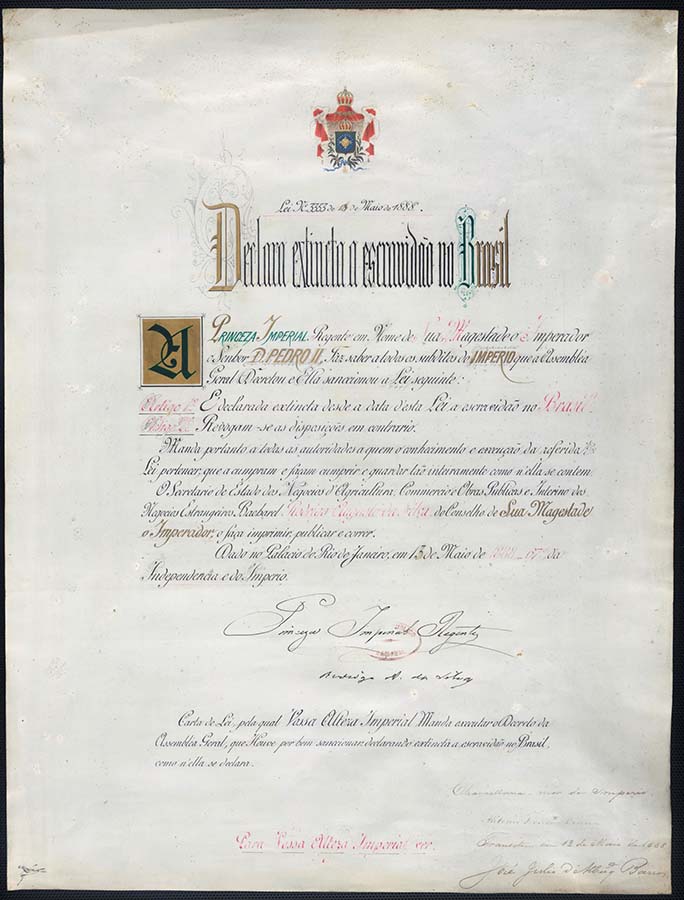 Lei Nº 3353 de 13 de Maio de 1888.
Declara extincta a escravidão no Brasil
A PRINCEZA IMPERIAL, Regente em Nome de Sua Magestade o Imperador
o Senhor D. PEDRO II, Faz saber a todos os subditos do IMPERIO que a Assembléa
Geral Decretou e Ella sanccionou a Lei seguinte:
Artigo 1º É declarada extincta desde a data d'esta Lei a escravidão no Brasil.
Artigo 2º Revogam-se as disposições em contrario.
Manda portanto a todas as autoridades a quem o conhecimento e execução da referida
Lei pertencer, que a cumpram e façam cumprir e guardar tão inteiramente como n'ella se contem.
O Secretario de Estado dos Negocios d'Agricultura, Commercio e Obras Publicas e Interino dos
Negocios Estrangeiros, Bacharel Rodrigo Augusto da Silva, do Conselho de Sua Magestade
o Imperador, o faça imprimir, publicar e correr.
Dado no Palacio do Rio de Janeiro, em 13 de Maio de 1888 67º da
Independencia e do Imperio.
Princeza Imperial Regente
Rodrigo A. da Silva
Carta de Lei, pela qual Vossa Alteza Imperial Manda executar o Decreto da
Assembléa Geral, que Houve por bem sanccionar, declarando extincta a escravidão no Brasil,
como n'ella se declara.
Chancellaria-mor do Imperio.
Transitou em 13 de Maio de 1888
José Julio d'Albuqe Barros
Para Vossa Alteza Imperial ver.